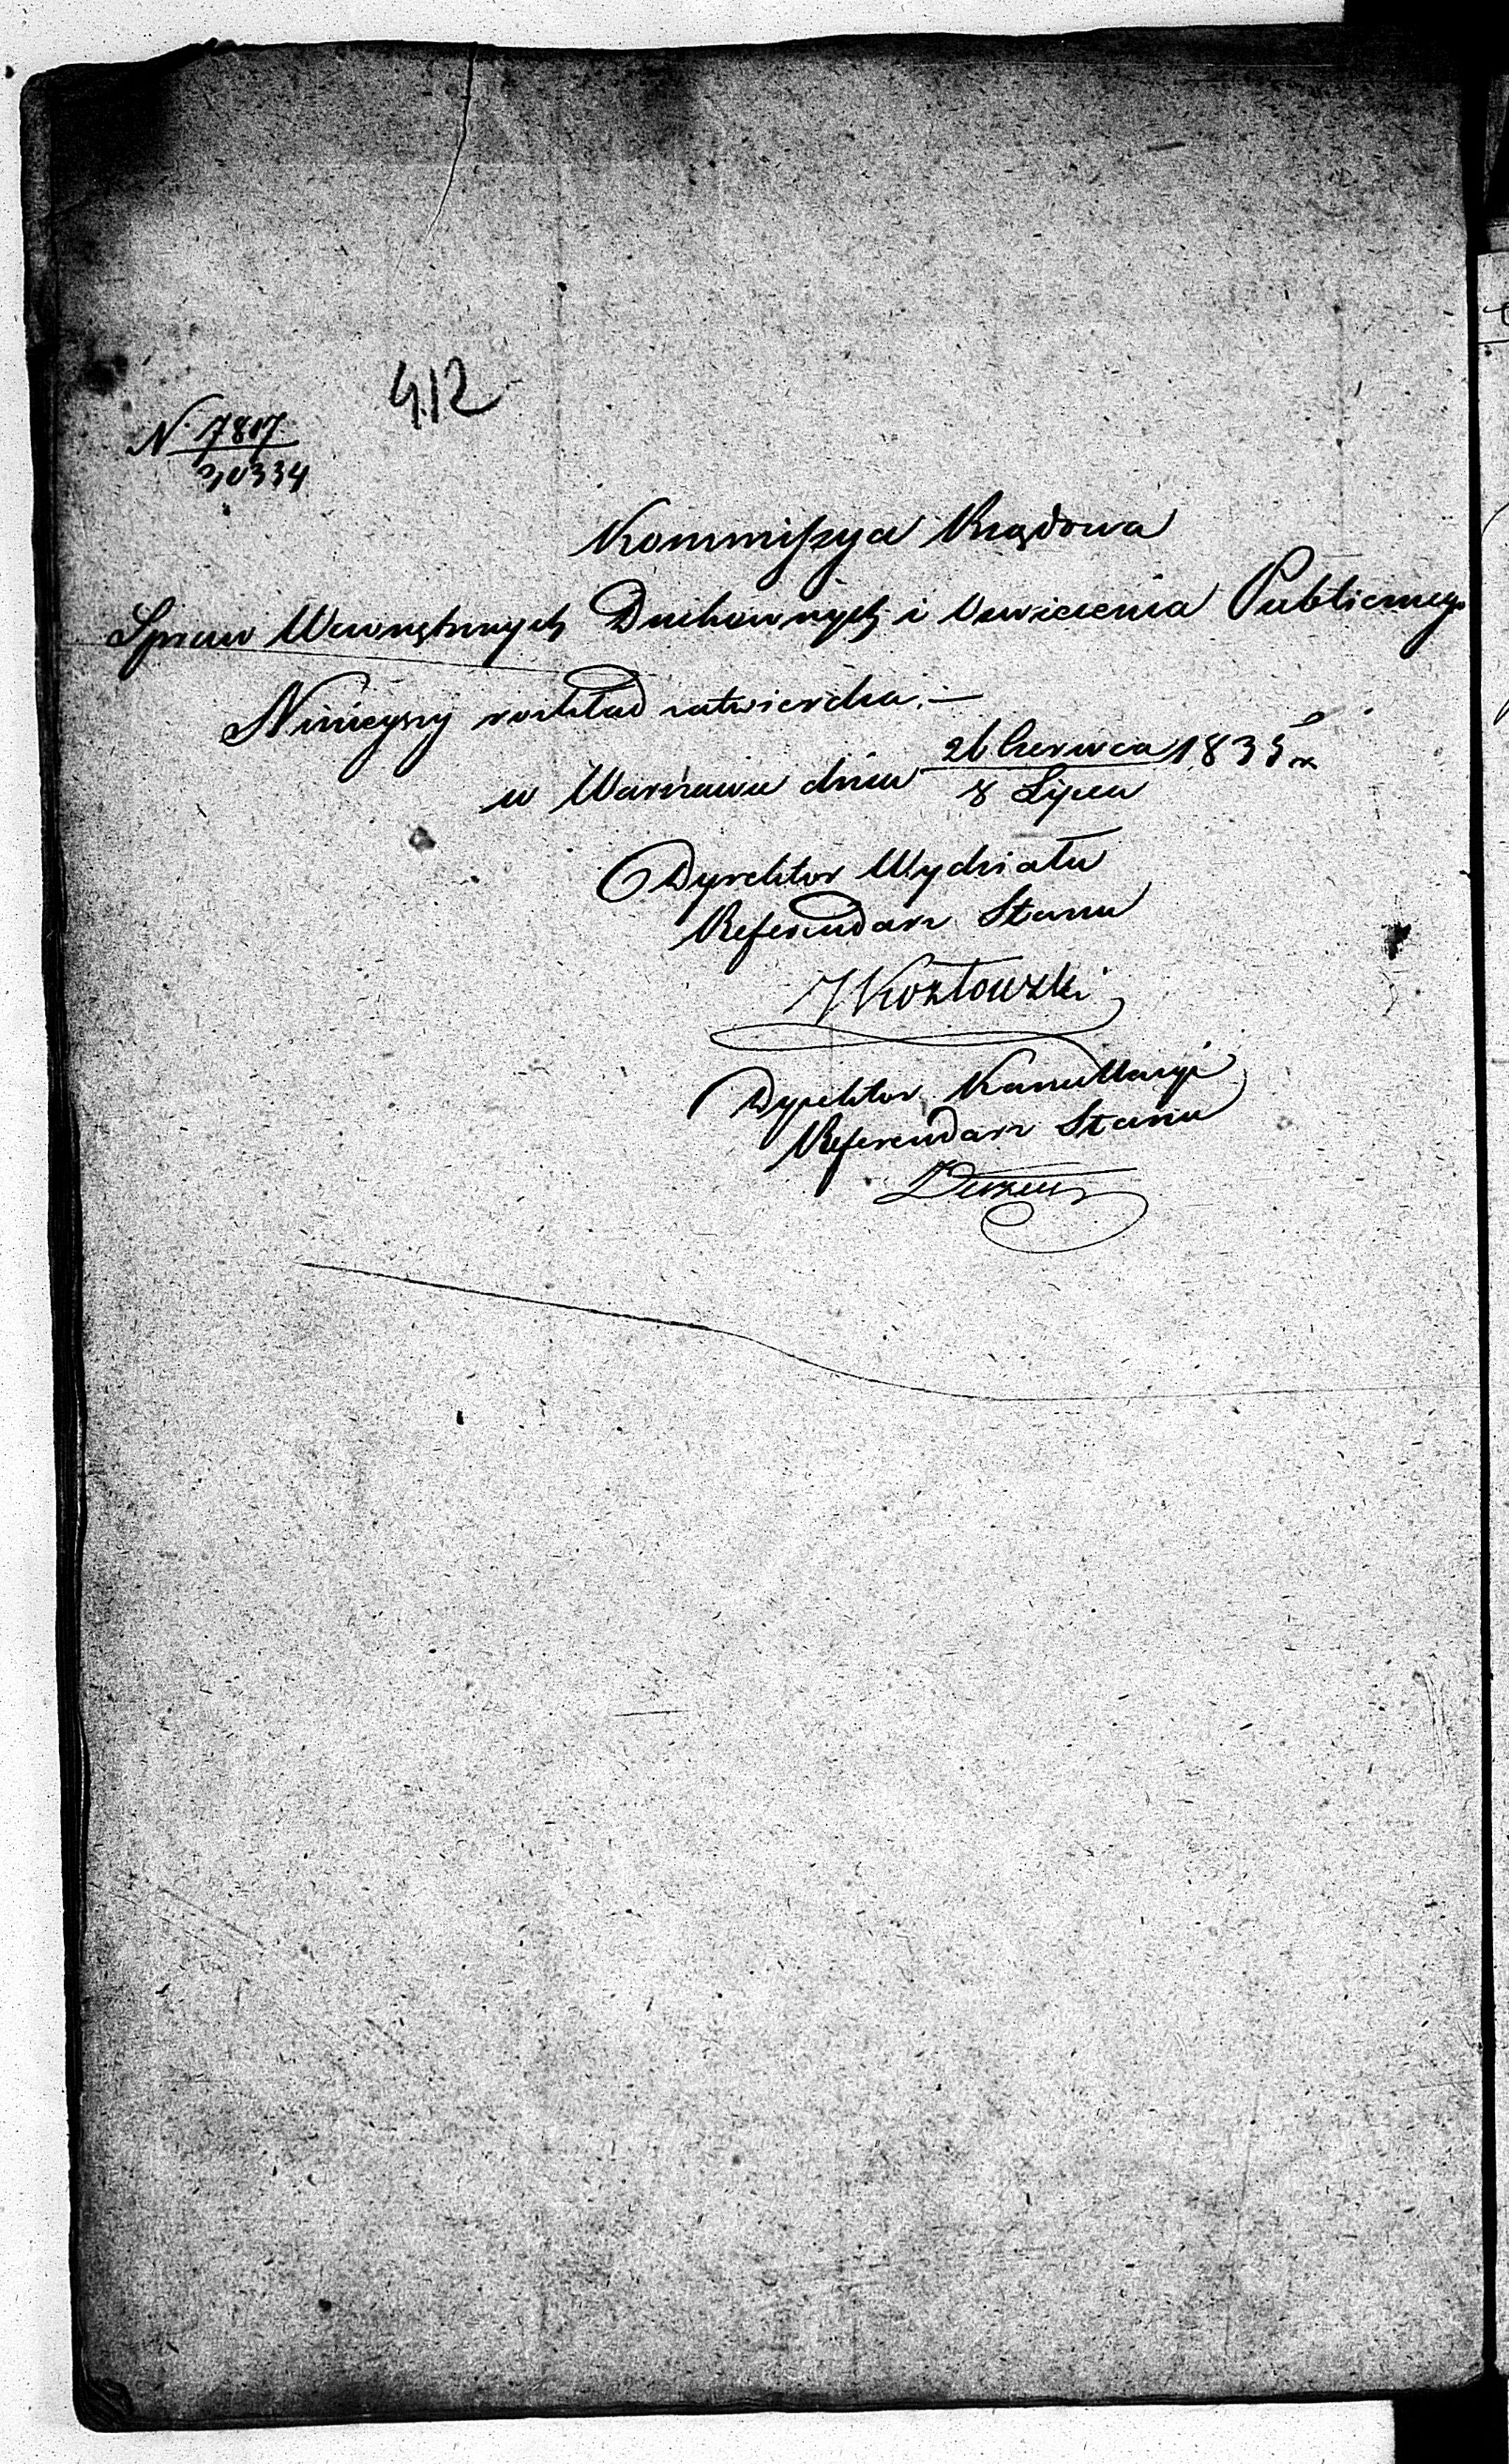 412
N. 7817
30334
Kommissya Rządowa
Spraw Wewnętrznych Duchownych i Oświecenia Publicznego
Ninieyszy rozkład zatwierdza. —
w Warszawie dnia 26 Czerwca 1835 r.
8 Lipca
Dyrektor Wydziału
Referendarz Stanu
J Kozłowski
Dyrektor Kancellaryi
Referendarz Stanu